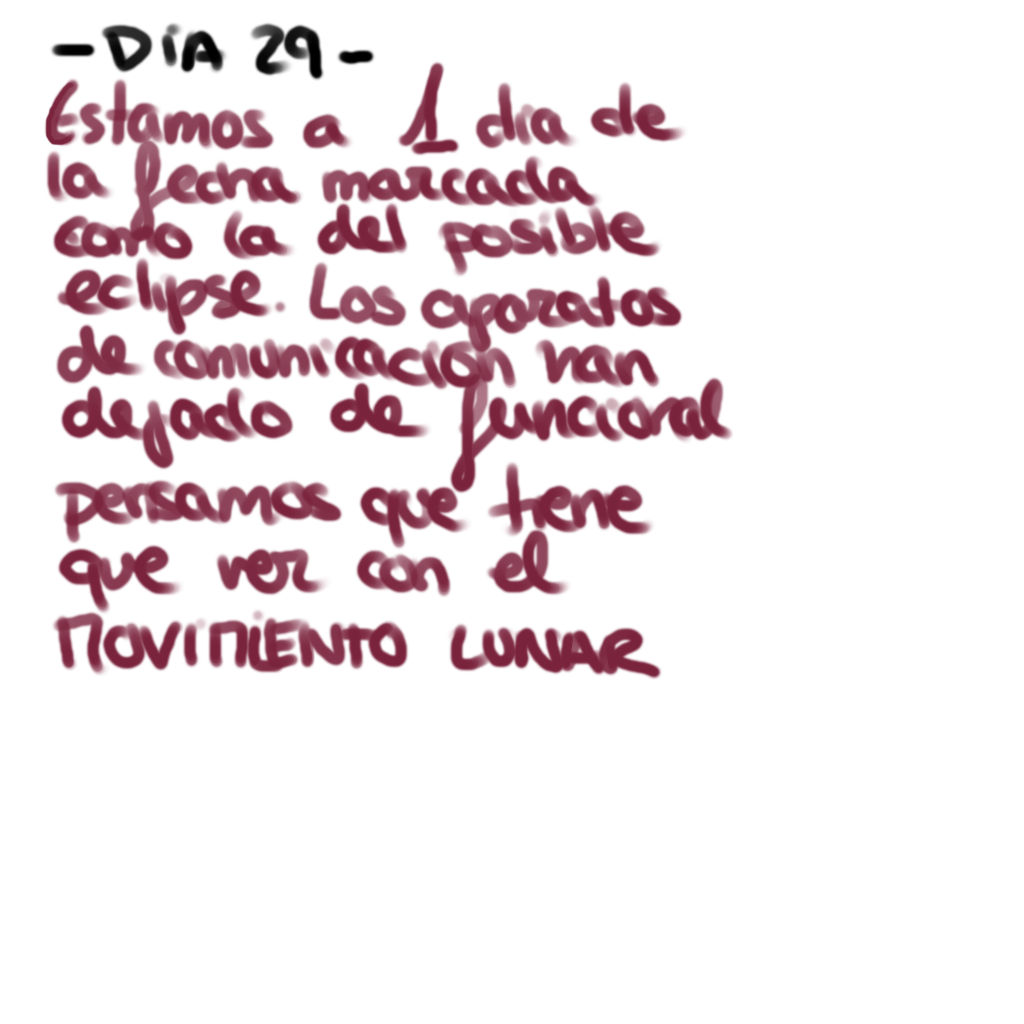 - DÍA 29 -
Estamos a 1 día de
la fecha marcada
como la del posible
eclipse. Los aparatos
de comunicación han
dejado de funcioral
pensamos que tiene
que ver con el
MOVIMIENTO LUNAR